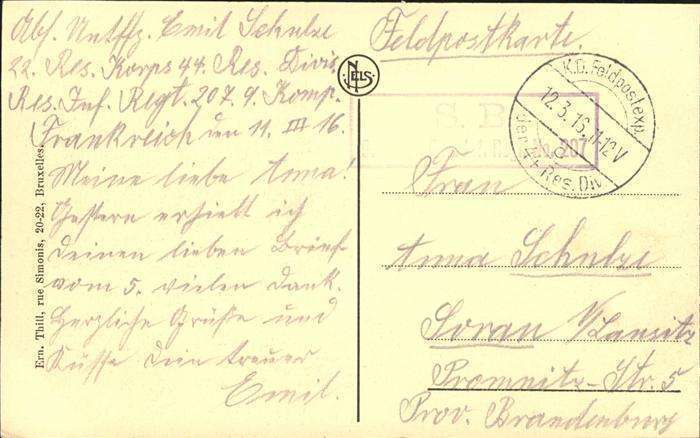 Abs. Untffz. Emil Schulze
22. Res. Korps 44. Res. Divis.
Res. Inf. Regt. 207. 9. Komp.
Frankreich den 11. III 16.
Meine liebe Anna!
Gestern erhielt ich
deinen lieben Brief
vom 5. vielen Dank.
Herzliche Grüße und
Küsse Dein treuer
Emil.
Ern. Thill, rue Simonis, 20-22, Bruxelles.
NELS
Feldpostkarte.
K.D. Feldpostexp.
12.3.16. 11-12 V
der 44. Res. Div.
S. B.
207
Frau
Anna Schulze
Sorau N/Lausitz
Promnitz-Str. 5
Prov. Brandenburg